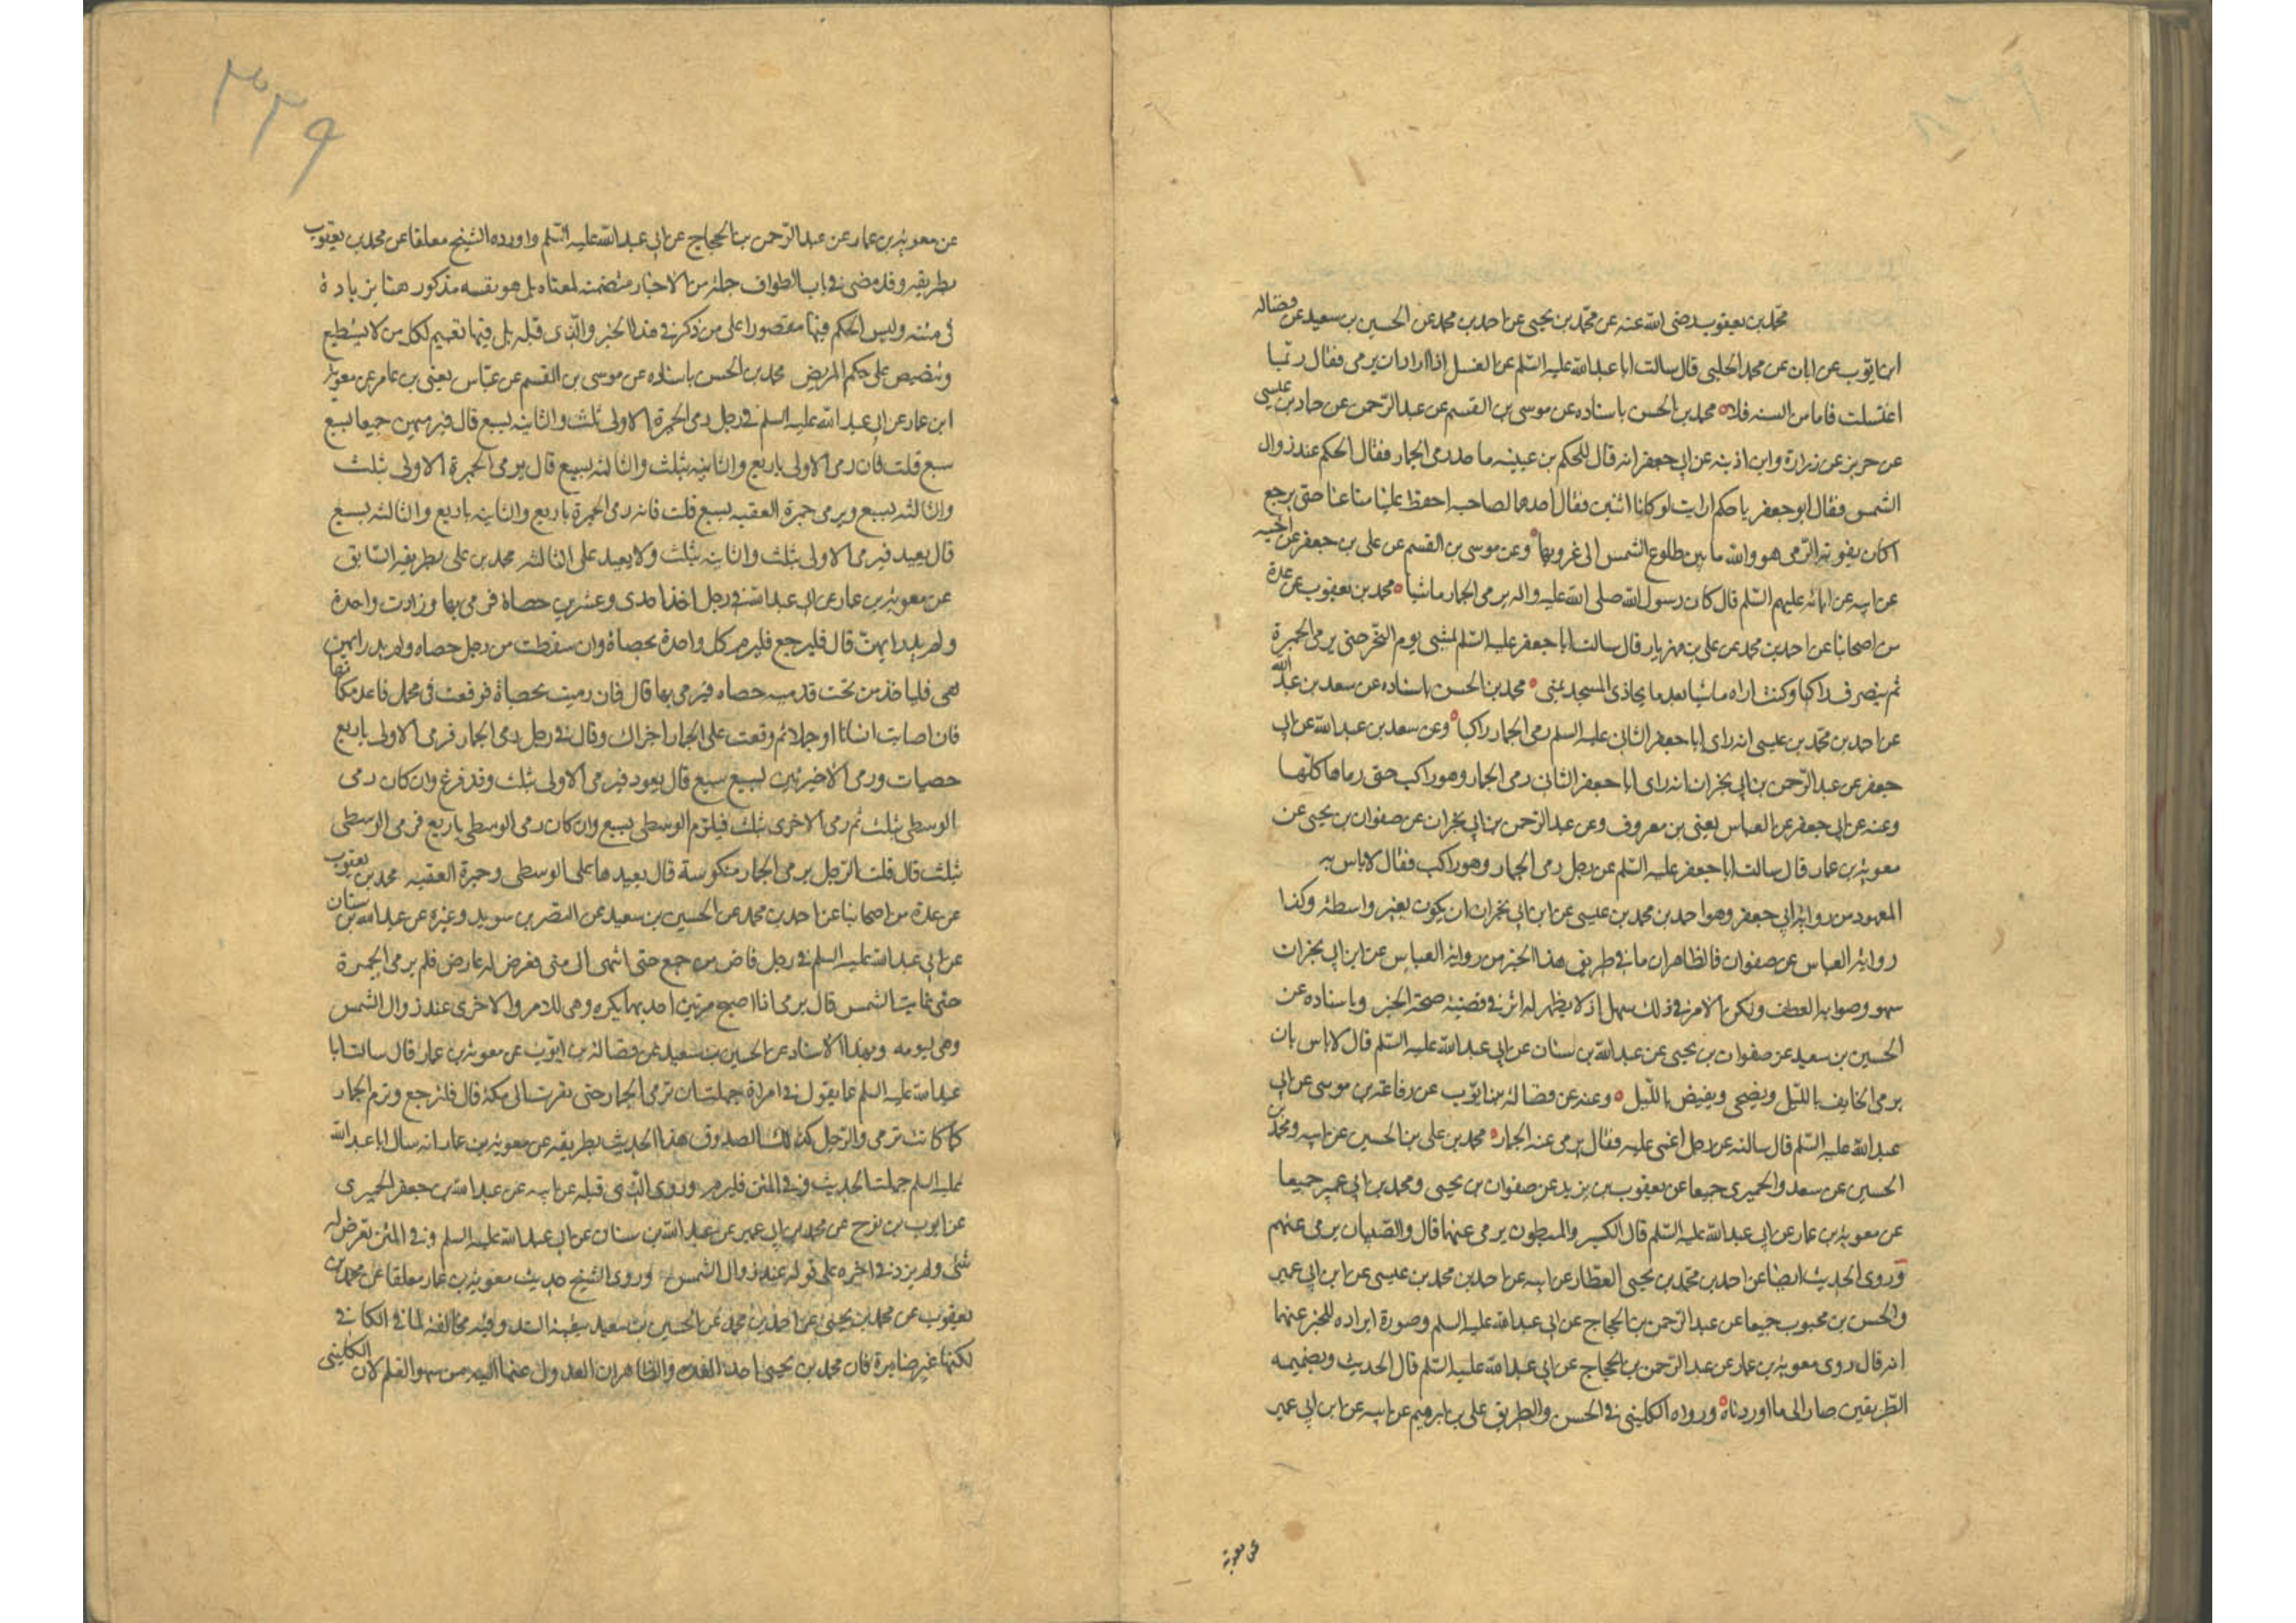 محمد بن يعقوب رضى الله عنه عن محمد بن يحيى عن احمد بن محمد عن الحسين بن سعيد عن فضاله
ابن ايوب عن ابان عن محمد الحلبى قال سالت ابا عبد الله عليه السلم عن الغسل اذا اراد ان يرمى فقال ربما
اغتسلت فاما من السنه فلا محمد بن الحسن باسناده عن موسى بن القسم عن عبد الرحمن عن حماد بن عيسى
عن حريز عن زرارة وابن اذينه عن ابى جعفر انه قال للحكم بن عيينه ما حد رمى الجمار فقال الحكم عند زوال
الشمس فقال ابو جعفر يا حكم ارايت لو كانا اثنين فقال احدهما لصاحبه احفظ علينا متاعنا حتى يرجع
اكان يفوته الرمى هو والله ما بين طلوع الشمس الى غروبها وعن موسى بن القسم عن على بن جعفر عن اخيه
عن ابيه عن ابائه عليهم السلم قال كان رسول الله صلى الله عليه واله يرمى الجمار ماشيا محمد بن يعقوب عن عدة
من اصحابنا عن احمد بن محمد عن على بن مهزيار قال سالت ابا جعفر عليه السلم يمشى يوم النحر حتى يرمى الجمرة
ثم ينصرف راكبا وكنت اراه ماشيا بعد ما يحاذى المسجد بمنى محمد بن الحسن باسناده عن سعد بن عبد الله
عن احمد بن محمد بن عيسى انه راى ابا جعفر الثانى عليه السلم رمى الجمار راكبا وعن سعد بن عبد الله عن ابى
جعفر عن عبد الرحمن بن ابى نجران انه راى ابا جعفر الثانى رمى الجمار وهو راكب حتى رماها كلها
وعنه عن ابى جعفر عن العباس يعنى بن معروف وعن عبد الرحمن بن ابى نجران عن صفوان بن يحيى عن
معوية بن عمار قال سالت ابا جعفر عليه السلم عن رجل رمى الجمار وهو راكب فقال لا باس به
المعهود من رواية ابى جعفر وهو احمد بن محمد بن عيسى عن ابن ابى نجران ان يكون بغير واسطة وكذا
رواية العباس عن صفوان فالظاهر ان ما فى طريق هذا الخبر من رواية العباس عن ابن ابى نجران
سهو وصوابه العطف ولكن الامر فى ذلك سهل اذ لا يظهر له اثر فى قضية صحة الخبر وباسناده عن
الحسين بن سعيد عن صفوان بن يحيى عن عبد الله بن سنان عن ابى عبد الله عليه السلم قال لا باس بان
يرمى الخايف بالليل ويضحى ويفيض بالليل وعنه عن فضالة بن ايوب عن رفاعة بن موسى عن ابى
عبد الله عليه السلم قال سالته عن رجل اغمى عليه فقال يرمى عنه الجمار محمد بن على بن الحسين عن ابيه ومحمد بن
الحسين عن سعد والحميرى جميعا عن يعقوب بن يزيد عن صفوان بن يحيى ومحمد بن ابى عمير جميعا
عن معوية بن عمار عن ابى عبد الله عليه السلم قال الكسير والمبطون يرمى عنهما قال والصبيان يرمى عنهم
وروى الحديث ايضا عن احمد بن محمد بن يحيى العطار عن ابيه عن احمد بن محمد بن عيسى عن ابن ابى عمير
والحسن بن محبوب جميعا عن عبد الرحمن بن الحجاج عن ابى عبد الله عليه السلم وصورة ايراده للخبر عنهما
انه قال روى معوية بن عمار عن عبد الرحمن بن الحجاج عن ابى عبد الله عليه السلم قال الحديث وبضميمه
الطريقين صار الى ما اوردناه ورواه الكلينى فى الحسن والطريق على بن ابرهيم عن ابيه عن ابن ابى عمير
عن معوية
٣٣٩
عن معوية بن عمار عن عبد الرحمن بن الحجاج عن ابى عبد الله عليه السلم واورده الشيخ معلقا عن محمد بن يعقوب
بطريقه وقد مضى فى باب الطواف جملة من الاخبار متضمنه لمعناه بل هو بنفسه مذكور هنا بزيادة
فى متنه وليس الحكم فيها مقصورا على من ذكر فى هذا الخبر والذى قبله بل فيها تعميم لكل من لا يستطيع
وتنصيص على حكم المريض محمد بن الحسن باسناده عن موسى بن القسم عن عباس يعنى بن عامر عن معوية
ابن عمار عن ابى عبد الله عليه السلم فى رجل رمى الجمرة الاولى بثلث والثانيه بسبع قال فيرميهن جميعا بسبع
سبع قلت فان رمى الاولى باربع والثانيه بثلث والثالثه بسبع قال يرمى الجمرة الاولى بثلث
والثالثه بسبع ويرمى جمرة العقبه بسبع قلت فانه رمى الجمرة باربع والثانيه باربع والثالثه بسبع
قال يعيد فيرمى الاولى بثلث والثانيه بثلث ولا يعيد على الثالثه محمد بن على بطريقه السابق
عن معوية بن عمار عن ابى عبد الله فى رجل اخذ احدى وعشرين حصاة فرمى بها وزادت واحدة
ولم يدر ايهن قال فليرجع فليرم كل واحدة بحصاة وان سقطت من رجل حصاه ولم يدر ايهن
هى فلياخذ من تحت قدميه حصاه فيرمى بها قال فان رميت بحصاة فوقعت فى محمل فاعد مكانها
فان اصابت انسانا او جملا ثم وقعت على الجمار اجزاك وقال فى رجل رمى الجمار فرمى الاولى باربع
حصيات ورمى الاخيرتين بسبع سبع قال يعود فيرمى الاولى بثلث وقد فرغ وان كان رمى
الوسطى بثلث ثم رمى الاخرى بثلث فليرم الوسطى بسبع وان كان رمى الوسطى باربع فرمى الوسطى
بثلث قال قلت الرجل يرمى الجمار منكوسة قال يعيدها على الوسطى وجمرة العقبه محمد بن يعقوب
عن عدة من اصحابنا عن احمد بن محمد عن الحسين بن سعيد عن النضر بن سويد وغيره عن عبد الله بن سنان
عن ابى عبد الله عليه السلم فى رجل افاض من جمع حتى انتهى الى منى فعرض له عارض فلم يرم الجمرة
حتى غابت الشمس قال يرمى اذا اصبح مرتين احديهما بكره وهى للامس والاخرى عند زوال الشمس
وهى ليومه وبهذا الاسناد عن الحسين بن سعيد عن فضالة بن ايوب عن معوية بن عمار قال سالت ابا
عبد الله عليه السلم ما يقول فى امراة جهلت ان ترمى الجمار حتى نفرت الى مكة قال فلترجع وترم الجمار
كما كانت ترمى والرجل كذلك الصدوق هذا الحديث بطريقه عن معوية بن عمار انه سال ابا عبد الله
عليه السلم جهلت الحديث وفى المتن فليرم وروى الذى قبله عن ابيه عن عبد الله بن جعفر الحميرى
عن ايوب بن نوح عن محمد بن ابى عمير عن عبد الله بن سنان عن ابى عبد الله عليه السلم وفى المتن تعرض له
شئ ولم يزد فى اخره على قوله عند زوال الشمس وروى الشيخ حديث معوية بن عمار معلقا عن محمد بن
يعقوب عن محمد بن يحيى عن احمد بن محمد عن الحسين بن سعيد ببقية السند وفيه مخالفة لما فى الكافى
لكنها غير ضايرة فان محمد بن يحيى احد العدة والظاهر ان العدول عنها اليه من سهو القلم لان الكلينى